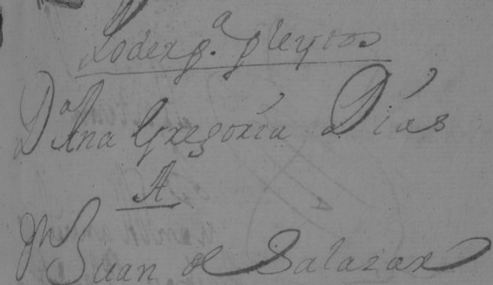 Poder p.ª pleytos
D.ª Ana Gregoria Dias
A
Juan de Salazar